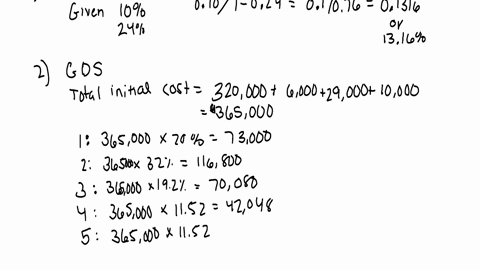 Given 10% 0.10/1-0.24 = 0.1/0.76 = 0.1316
24% or
13.16%
2) GOS
Total initial cost = 320,000 + 6,000 + 29,000 + 10,000
= $365,000
1: 365,000 x 20% = 73,000
2: 365000 x 32% = 116,800
3: 365,000 x 19.2% = 70,080
4: 365,000 x 11.52 = 42,048
5: 365,000 x 11.52